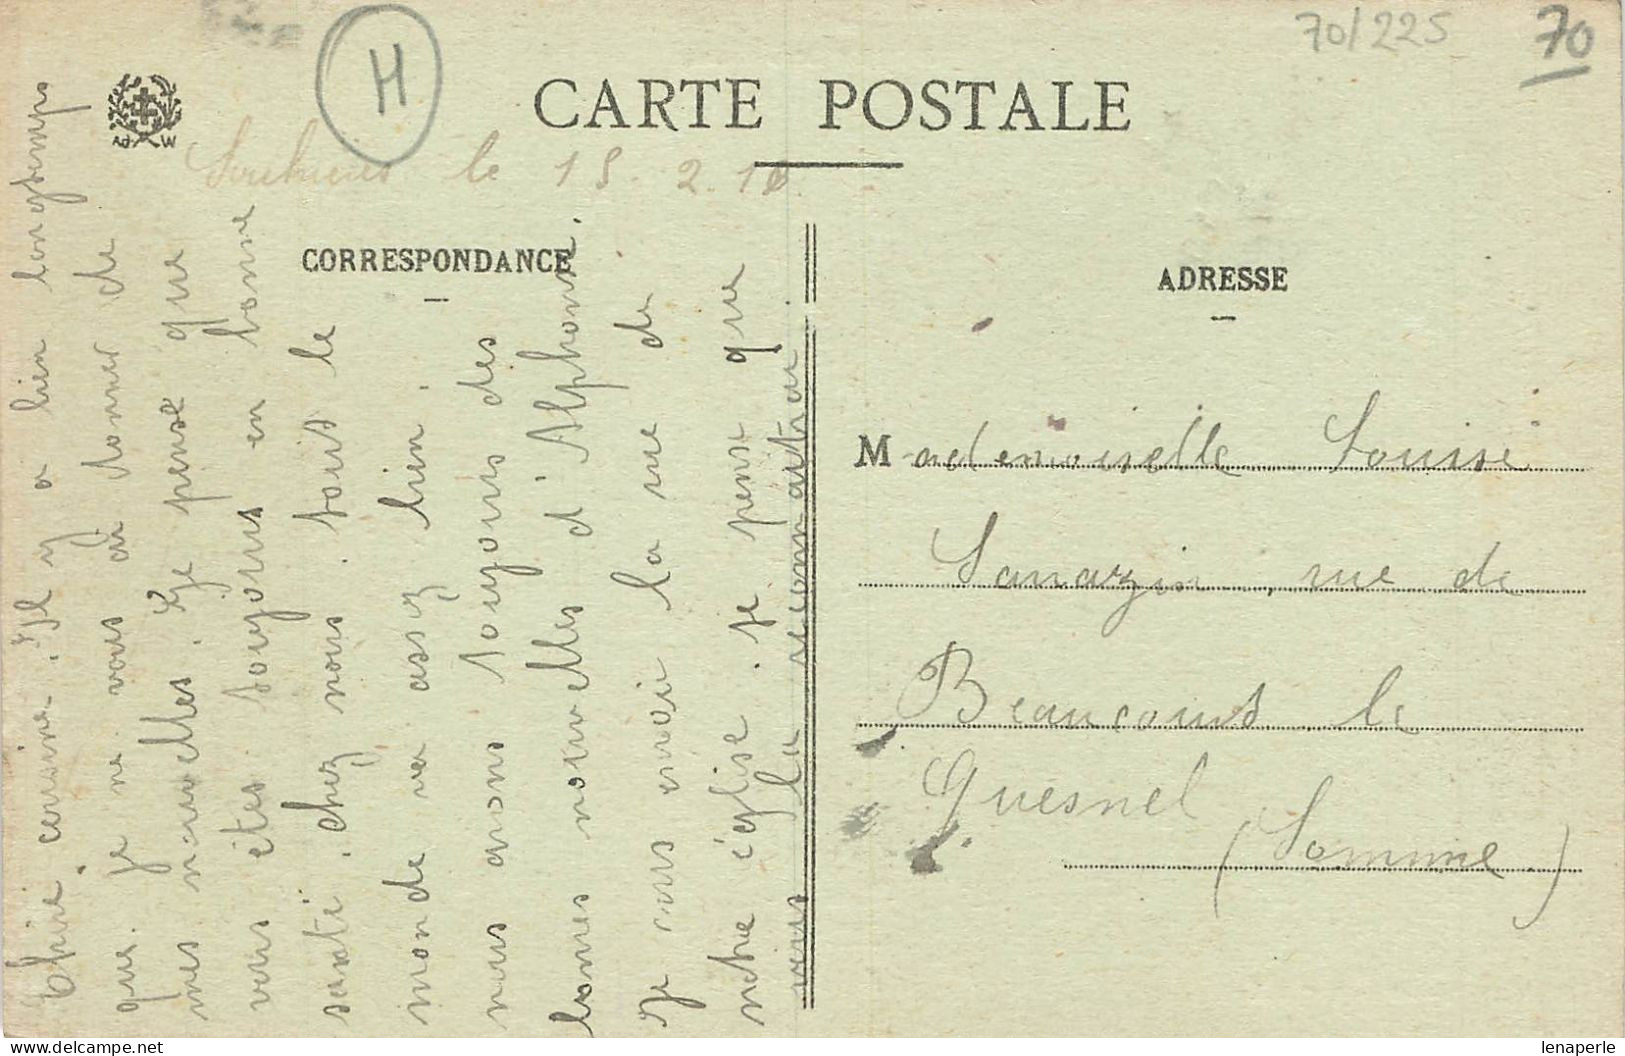 70/225
70
H
CARTE POSTALE
le 15.2.16
CORRESPONDANCE
Chère cousine. Il y a bien longtemps
que je ne vous ai donner de
mes nouvelles. Je pense que
vous êtes toujours en bonne
santé. chez nous tous le
monde va assez bien.
nous avons toujours des
bonnes nouvelles d'Alphonse.
Je vous envoie la vue de
notre église. je pense que
vous la reconnaitrai.
ADRESSE
Mademoiselle Louise
Sanazin, rue de
Beaucourt le
Quesnel
(Somme)
lenaperle